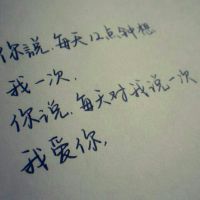 你說,每天12点钟想
我一次.
你说,每天对我说一次
我爱你,